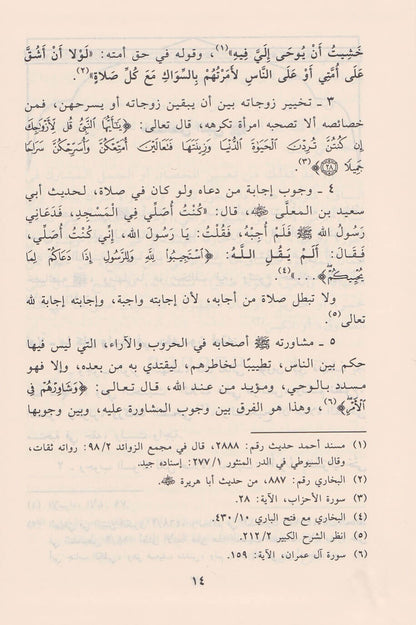 خَشِيتُ أَنْ يُوحَى إِلَيَّ فِيهِ»(١)، وقوله في حق أمته: «لَوْلا أَنْ أَشُقَّ
عَلَى أُمَّتِي أَوْ عَلَى النَّاسِ لأَمَرْتُهُمْ بِالسِّوَاكِ مَعَ كُلِّ صَلاةٍ»(٢).
٣ ـ تخيير زوجاته بين أن يبقين زوجاته أو يسرحهن، فمن
خصائصه ألا تصحبه امرأة تكرهه، قال تعالى: ﴿يَٰٓأَيُّهَا ٱلنَّبِيُّ قُل لِّأَزْوَٰجِكَ
إِن كُنتُنَّ تُرِدْنَ ٱلْحَيَوٰةَ ٱلدُّنْيَا وَزِينَتَهَا فَتَعَالَيْنَ أُمَتِّعْكُنَّ وَأُسَرِّحْكُنَّ سَرَاحًا
جَمِيلًا ۝٢٨﴾(٣)
٤ ـ وجوب إجابة من دعاه ولو كان في صلاة، لحديث أبي
سعيد بن المعلَّى ﷺ، قال: «كُنْتُ أُصَلِّي فِي الْمَسْجِدِ، فَدَعَانِي
رَسُولُ اللهِ ﷺ فَلَمْ أُجِبْهُ، فَقُلْتُ: يَا رَسُولَ اللهِ، إِنِّي كُنْتُ أُصَلِّي،
فَقَالَ: أَلَمْ يَقُلِ اللهُ: ﴿ٱسْتَجِيبُوا۟ لِلَّهِ وَلِلرَّسُولِ إِذَا دَعَاكُمْ لِمَا
يُحْيِيكُمْ﴾...»(٤).
ولا تبطل صلاة من أجابه، لأن إجابته واجبة، وإجابته إجابة لله
تعالى(٥).
٥ ـ مشاورته ﷺ أصحابه في الحروب والآراء، التي ليس فيها
حكم بين الناس، تطييبًا لخاطرهم، ليقتدي به من بعده، وإلا فهو
مسدد بالوحي، ومؤيد من عند الله، قال تعالى: ﴿وَشَاوِرْهُمْ فِي
ٱلْأَمْرِ﴾(٦)، وهذا هو الفرق بين وجوب المشاورة عليه، وبين وجوبها
(١) مسند أحمد حديث رقم: ٢٨٨٨، قال في مجمع الزوائد ٩٨/٢: رواته ثقات،
وقال السيوطي في الدر المنثور ٢٧٧/١: إسناده جيد.
(٢) البخاري رقم: ٨٨٧، من حديث أبا هريرة
(٣) سورة الأحزاب، الآية: ٢٨.
(٤) البخاري مع فتح الباري ٤٣٠/١٠.
(٥) انظر الشرح الكبير ٢١٢/٢.
(٦) سورة آل عمران، الآية: ١٥٩.
١٤